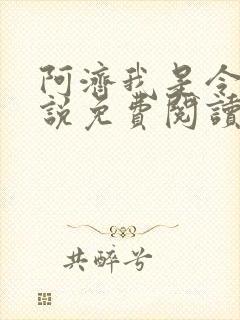 阿濟我是令
說免費閱讀
共醉兮